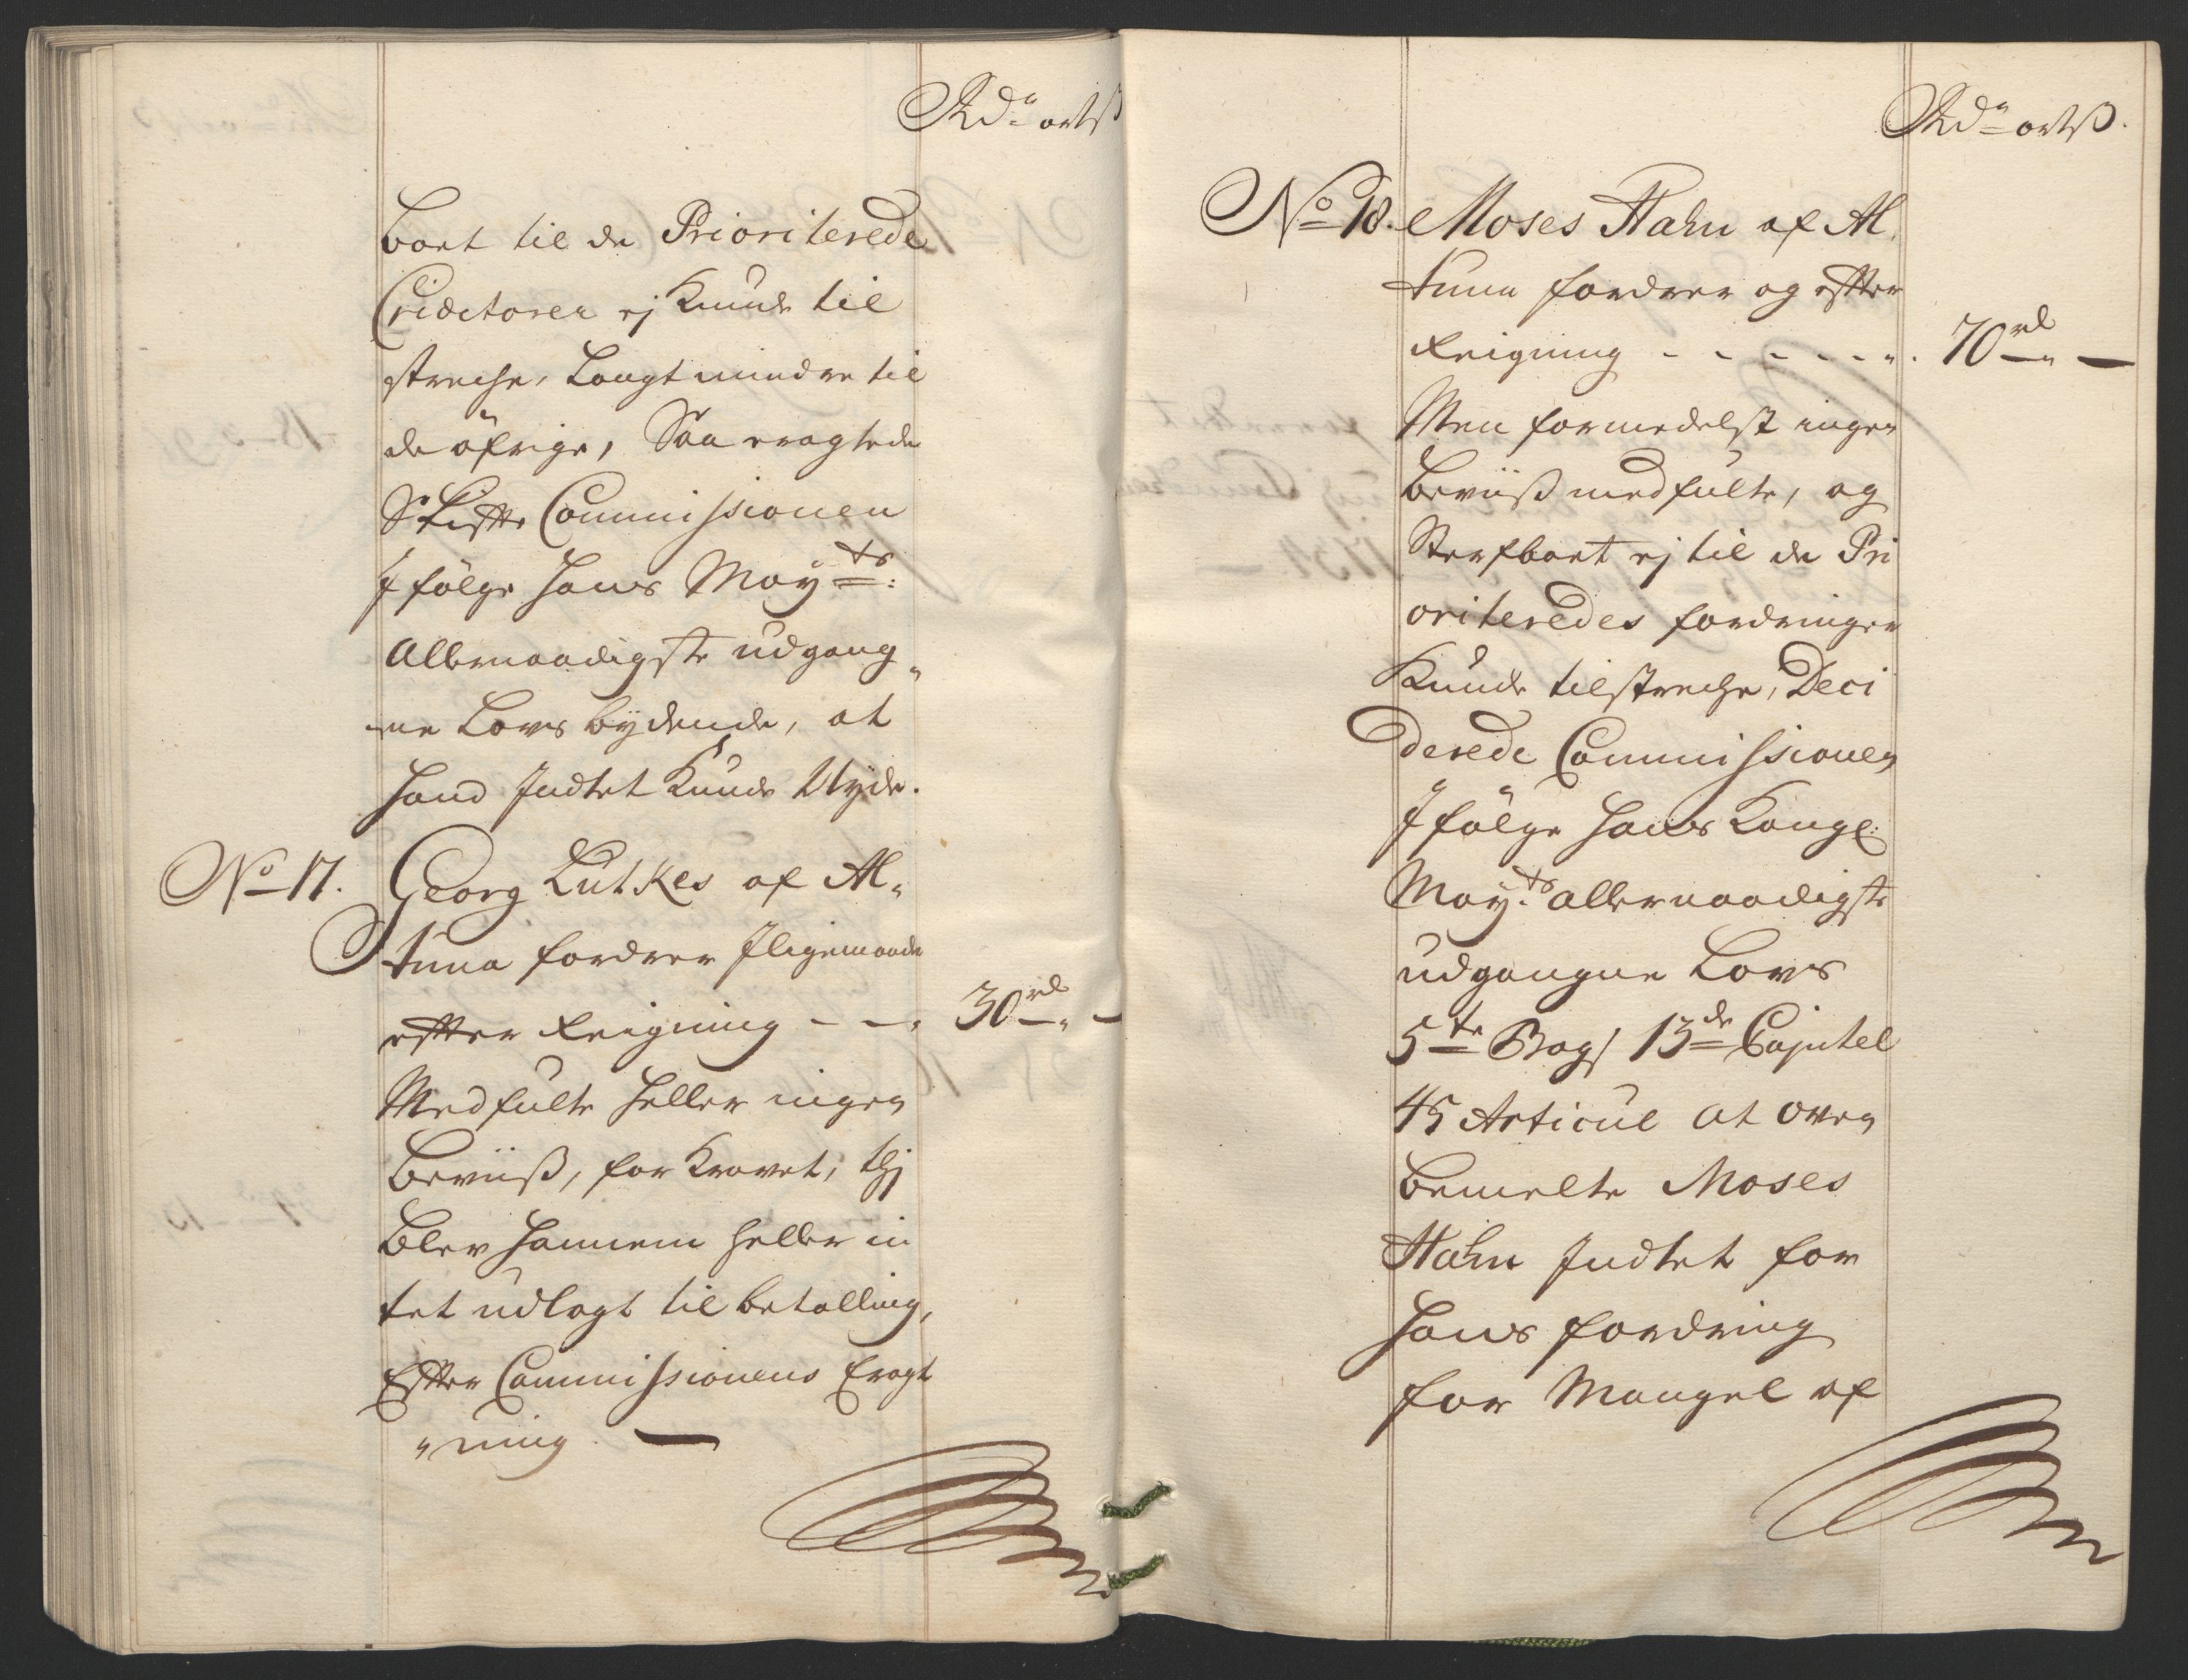 Rdr ort ß
boet til de Prioriterede
Creditorer ej Kunde til
strecke, Langt mindre til
de öfrige, Saa eragtede
Skifte Commissionen
J fölge Hans Maÿts:
Allernaadigste udgang„
ne Lovs bÿdende, at
Hand Jndtet Kunde Nÿde.
No 17. Georg Lutkes af Al„
tuna fordrer Jligemaade
efter Reigning - - „ 30 rd „ —
Medfulte Heller ingen
Beviiß, for Kravet, thj
blev Hannem Heller in
tet udlagt til betalling,
Efter Commissionens Eragt
„ning. —
Rdr ort ß.
No 18. Moses Hahn af Al
tuna fordrer og efter
Reigning - - - - - - „. 70 rd „ —
Men formedelst ingen
Beviiß medfulte, og
Sterfboet ej til de Pri
oriteredes fordringer
Kunde tilstrecke, Deci
derede Commissionen
J fölge Hans Kongl:
Maÿts: allernaadigste
udgangne Lovs
5te Bogs 13de Capitel
45 Articul at oven
bemelte Moses
Hahn Jndtet for
Hans fordring
for Mangel af